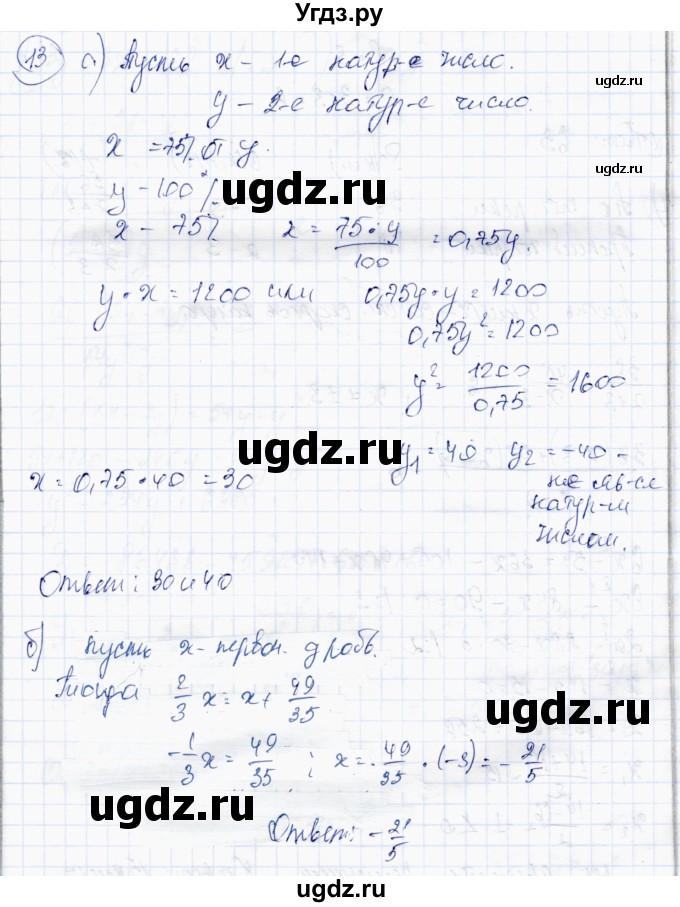 Угдз.ру
13 а) Пусть x - 1-е натур-е число.
y - 2-е натур-е число.
x = 75% от y.
y - 100%
ugdz.ru
x - 75% x = 75·y/100 = 0,75y.
y·x = 1200 или 0,75y·y = 1200
0,75y² = 1200
y² = 1200/0,75 = 1600
ugdz.ru
y₁ = 40 y₂ = -40 -
x = 0,75·40 = 30
не яв-ся
натур-м
числом.
Ответ: 30 и 40
б) Пусть x - первон. дробь.
Тогда 2/3 x = x + 49/35
ugdz.ru
-1/3 x = 49/35 ; x = 49/35 · (-3) = -21/5
ugdz.ru
Ответ: -21/5
ugdz.ru